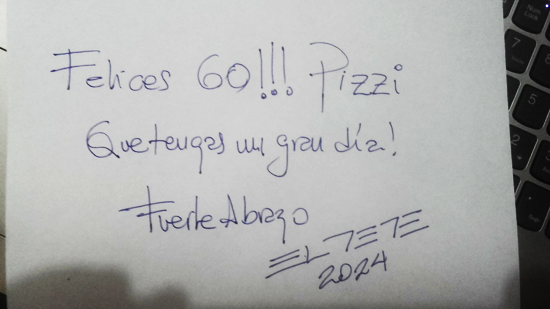 Felices 60!!! Pizzi
Que tengas un gran día!
Fuerte Abrazo
EL TETE
2024